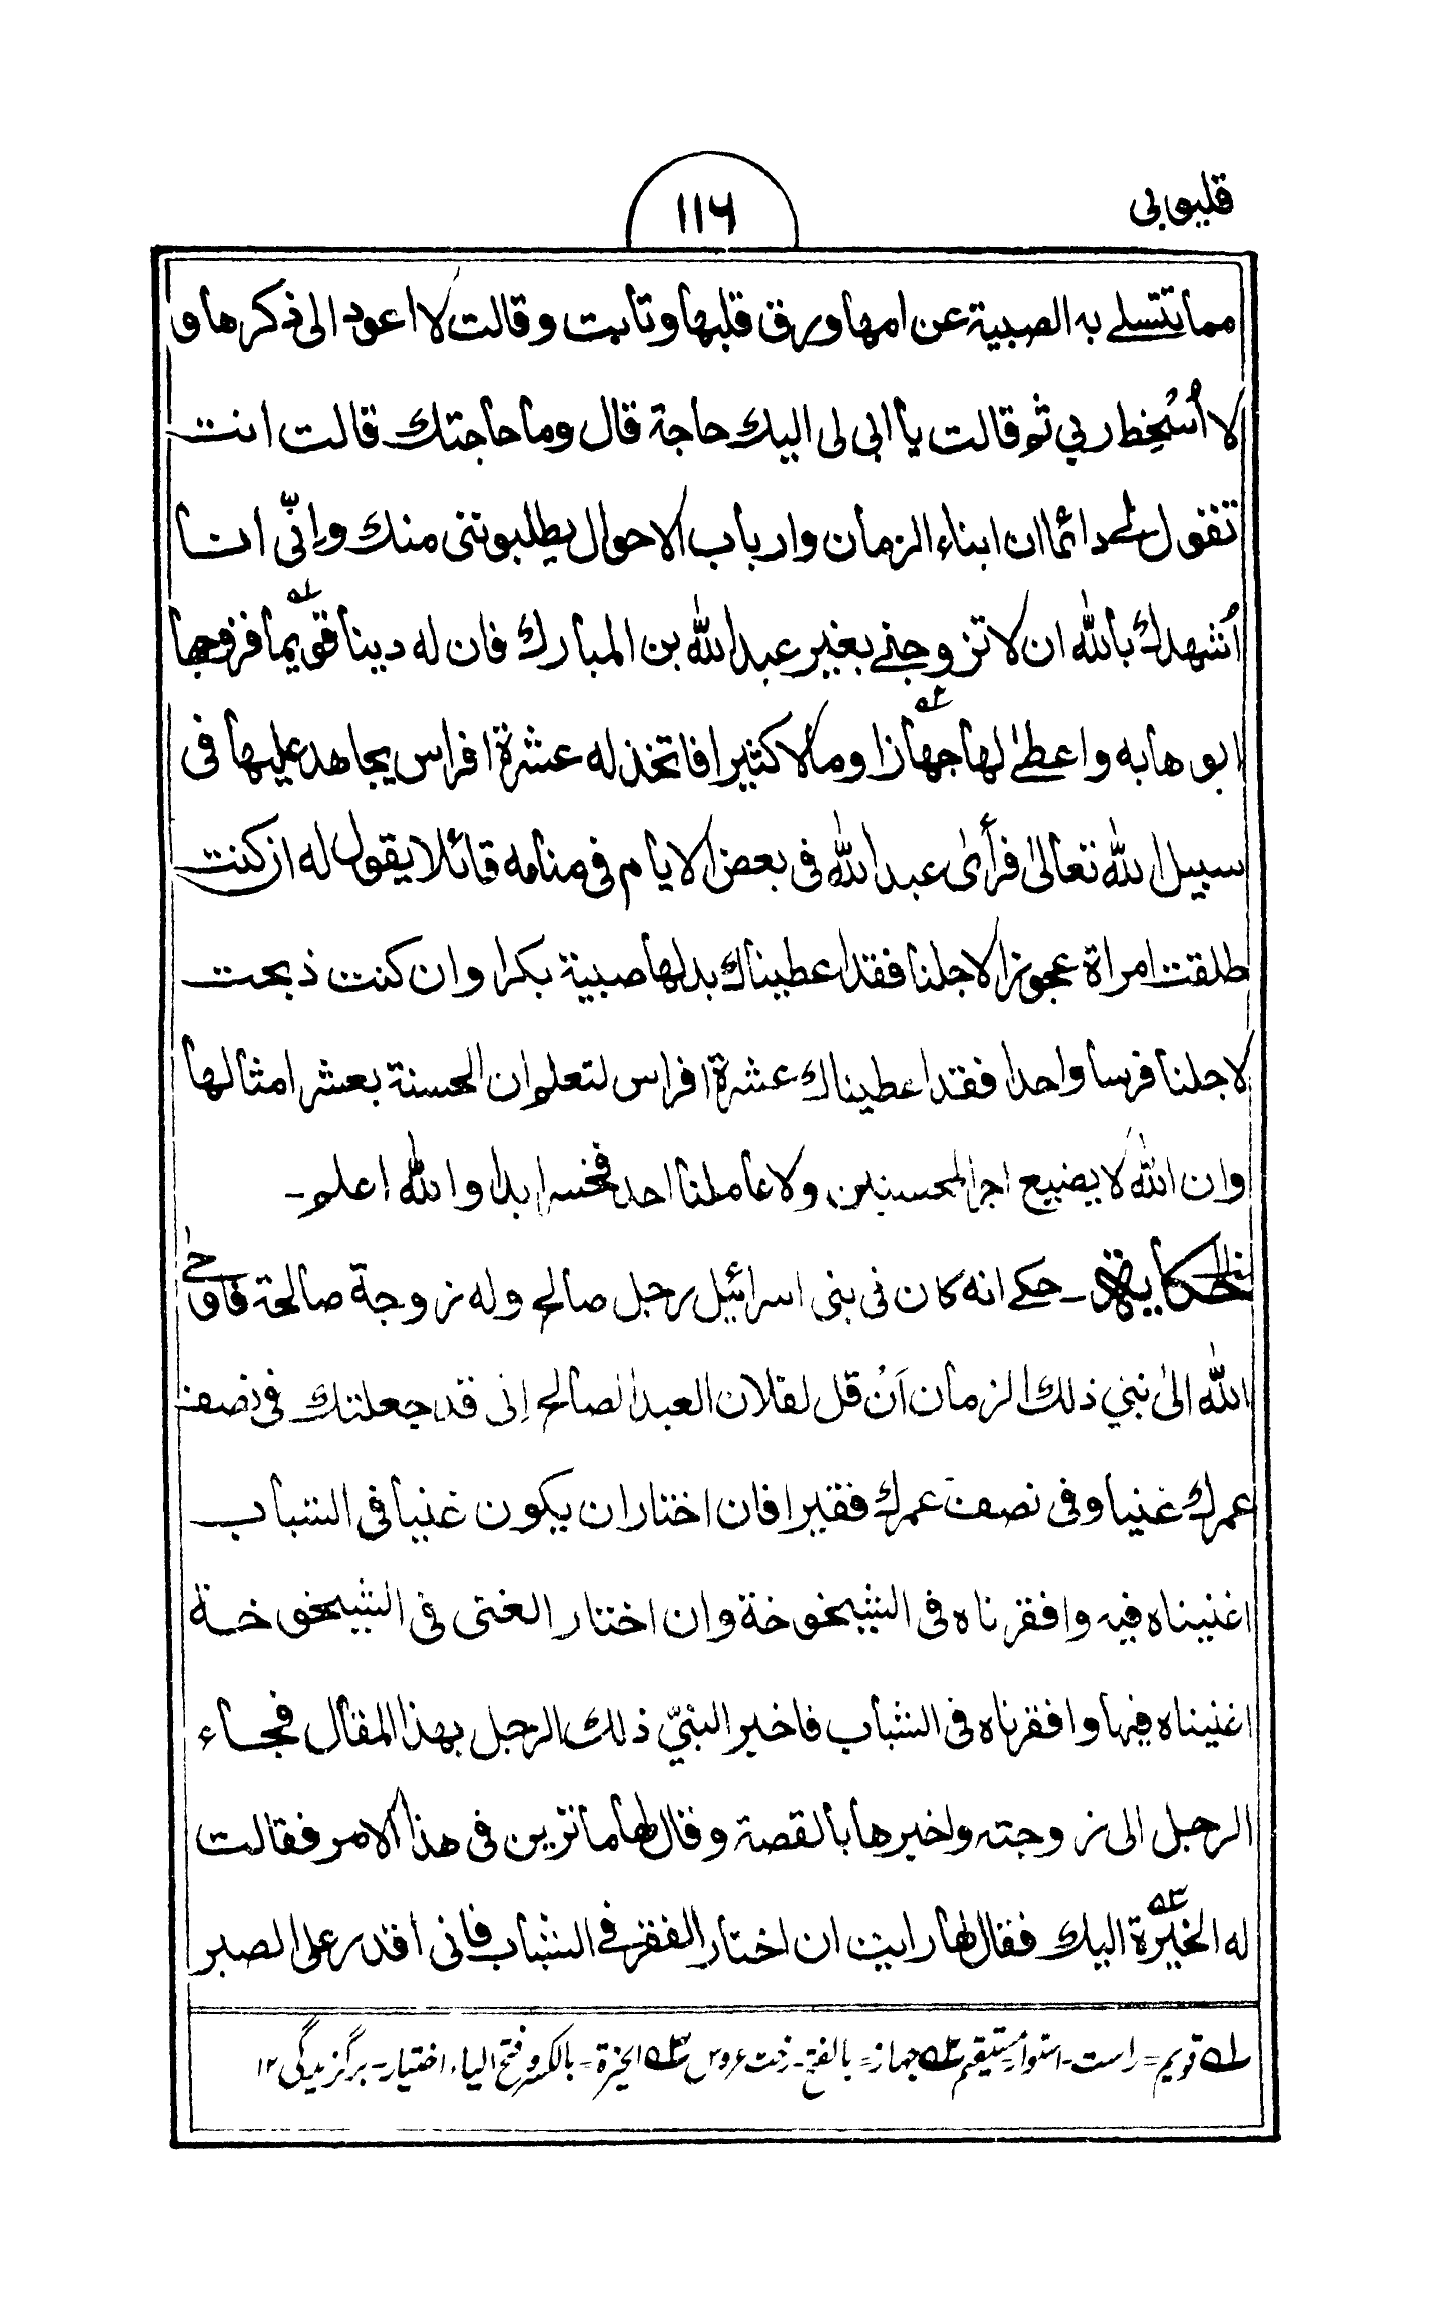 قليوبى
١١٦
مما يتسلے به الصبية عن امها ورق قلبها وتابت وقالت لا اعود الى ذكرها و
لا أُسْخِط ربي ثم قالت يا ابى لى اليك حاجة قال وما حاجتك قالت انت
تقول لے دائما ان ابناء الزمان وارباب الاحوال يطلبوننى منك وإنّى انا
أُشهدك بالله ان لا تزوجنے بغير عبد الله بن المبارك فان له دينا قويما فزوجها
ابوها به واعطىٰ لها جهازا ومالا كثيرا فاتخذ له عشرة افراس يجاهد عليها فى
سبيل الله تعالىٰ فرأىٰ عبد الله فى بعض الايام فى منامه قائلا يقول له ان كنت
طلقت امراة عجوزا لاجلنا فقد اعطيناك بدلها صبية بكرا وان كنت ذبحت
لاجلنا فرسا واحدا فقد اعطيناك عشرة افراس لتعلم ان الحسنة بعشر امثالها
وان الله لا يضيع اجر المحسنين ولا عاملنا احد فخسر ابدا والله اعلم۔
الحكاية ۔ حكے انه كان فى بنى اسرائيل رجل صالح وله زوجة صالحة فاوحى
الله الىٰ نبي ذلك الزمان اَنْ قل لفلان العبد الصالح إنى قد جعلتك فى نصف
عمرك غنيا وفى نصف عمرك فقيرا فان اختار ان يكون غنيا فى الشباب
اغنيناه فيه وافقرناه فى الشيخوخة وان اختار الغنى فى الشيخوخة
اغنيناه فيها وافقرناه فى الشباب فاخبر النبيّ ذلك الرجل بهذا المقال فجاء
الرجل الى زوجته واخبرها بالقصة وقال لها ما ترين فى هذا الامر فقالت
له الخيَرة اليك فقال لها رايت ان اختار الفقر فے الشباب فانى اقدر على الصبر
لـه قويم = راست۔ استوار مستقيم ٢ـه جهاز = بالفتح۔ رخت عروس ٣ـه الخيرة = بالكسر وفتح الياء اختيار۔ برگزيدگى ١٢